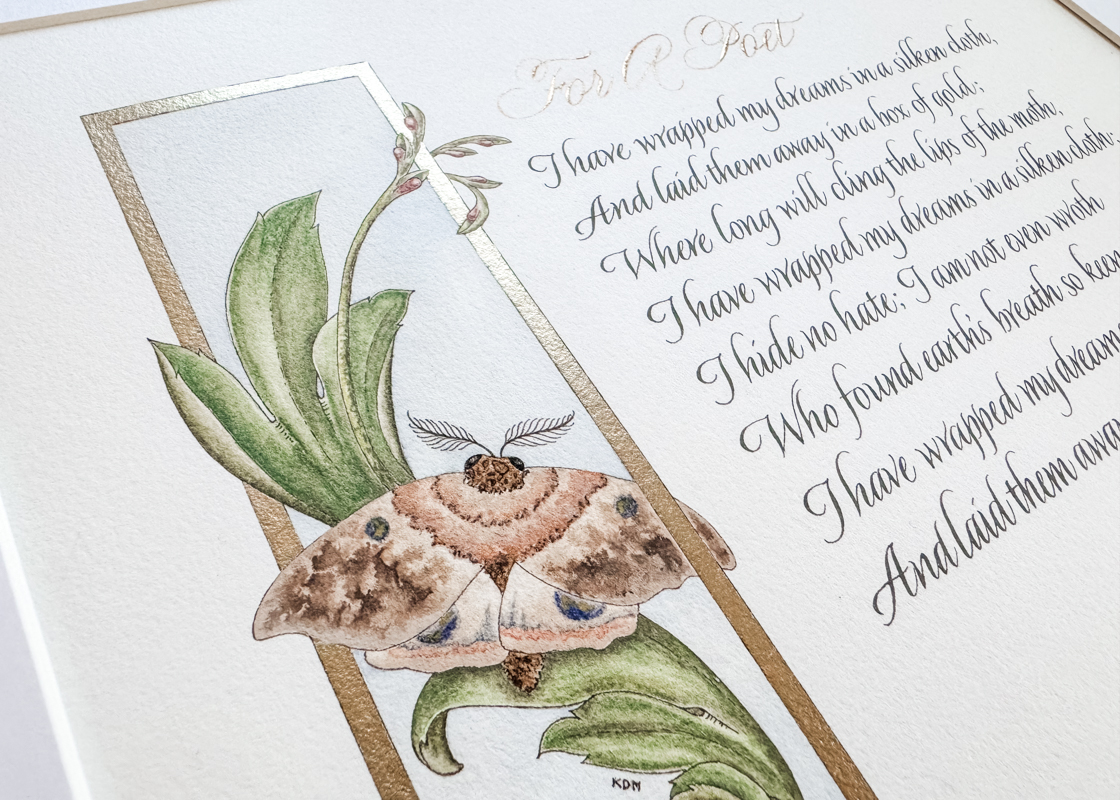 For A Poet
I have wrapped my dreams in a silken cloth,
And laid them away in a box of gold;
Where long will cling the lips of the moth,
I have wrapped my dreams in a silken cloth;
I hide no hate; I am not even wroth
Who found earth's breath so keen
I have wrapped my dream
And laid them away
KDM